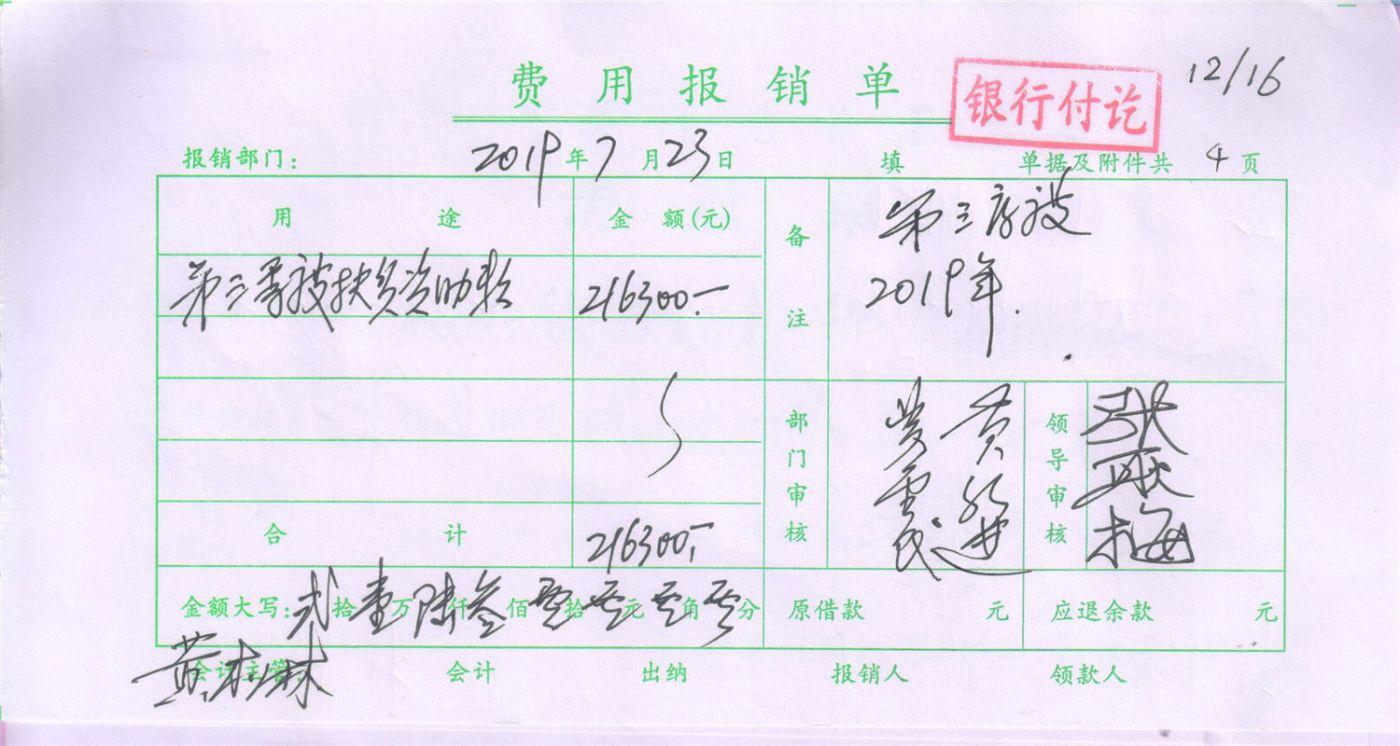 费用报销单
银行付讫
12/16
报销部门: 2019年7月23日 填 单据及附件共 4 页
用途 金额(元) 备注 第三
2019年.
第三季被扶贫资助款 216300.-
部门审核 领导审核 张 梅
合计 216300.-
金额大写: 贰拾壹万陆仟叁佰零拾零元零角零分 原借款 元 应退余款 元
会计主管 黄 林 会计 出纳 报销人 领款人